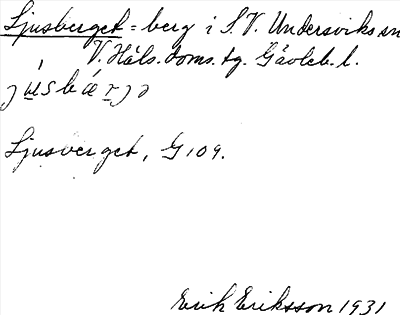 Ljusberget = berg i S.V. Undersviks sn
V. Häls. doms. tg. Gävleb. l.
j u̲ s b ǽ r̲ j ə
Ljusverget, G 109.
Erik Eriksson 1931